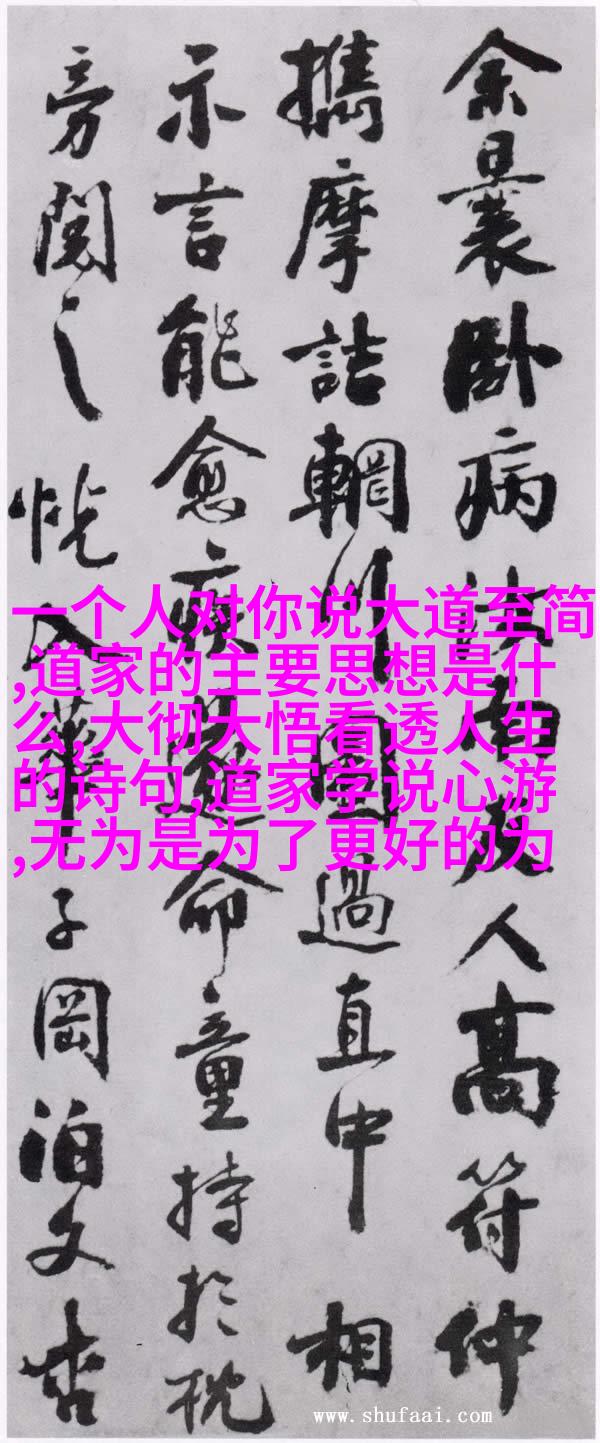 余曩卧病汝南友人高符仲
攜摩詰輞川圖過直中相
示言能愈疾遂命童持於枕
旁閱之恍入華子岡泊文杏
一个人对你说大道至简
,道家的主要思想是什
么,大彻大悟看透人生
的诗句,道家学说心游
,无为是为了更好的为
www.shufaai.com